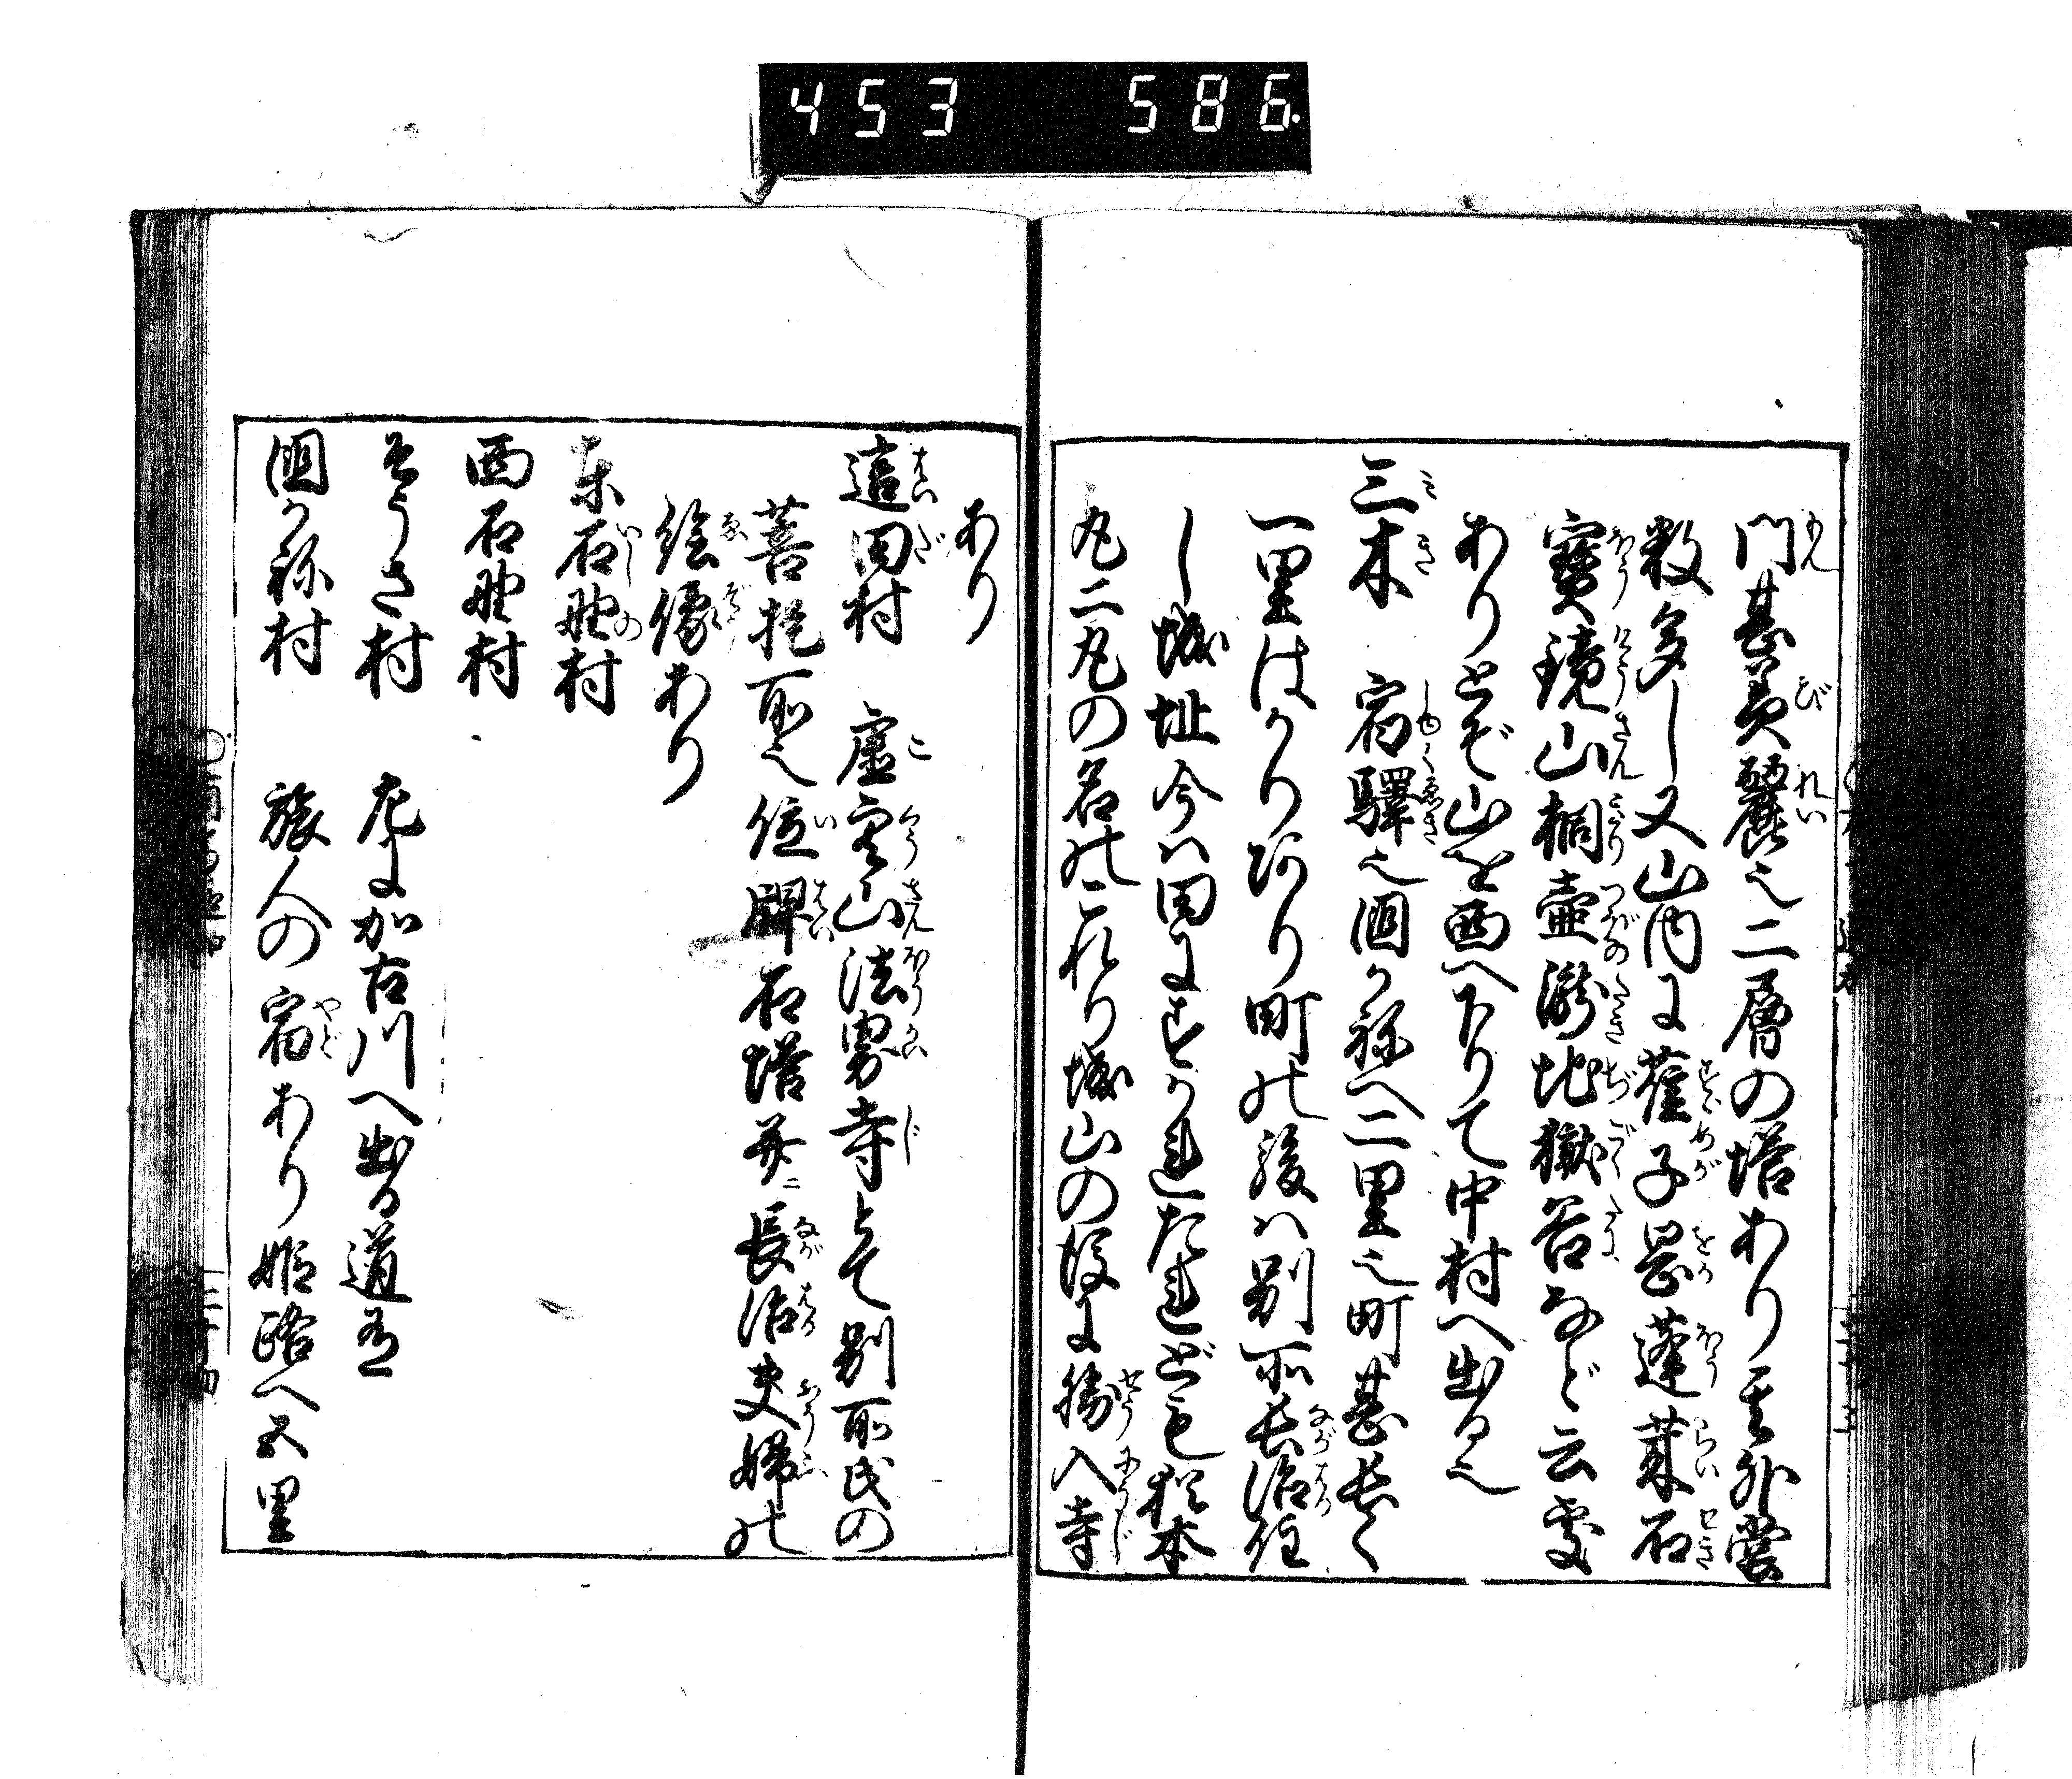 453 586
門甚美麗也二層の塔あり其外堂
数多し又山内に雀子昆蓬莱石
寳鏡山桐壷瀧地獄谷など云處
ありとぞ山を西へ下りて中村へ出る也
三木 宿驛也国かねへ二里也町甚長く
一里はかりあり町の後ハ別所長治住
し城址今ハ田にすかれたれども猶本
丸二丸の名のこれり城山の後に勝入寺
あり
這田村 虚空山法界寺とて別所氏の
菩提所也位牌石塔并ニ長治夫婦の
絵像あり
東石野村
西石野村
そうさ村 左に加古川へ出る道有
国かね村 旅人の宿あり姫路へ五里